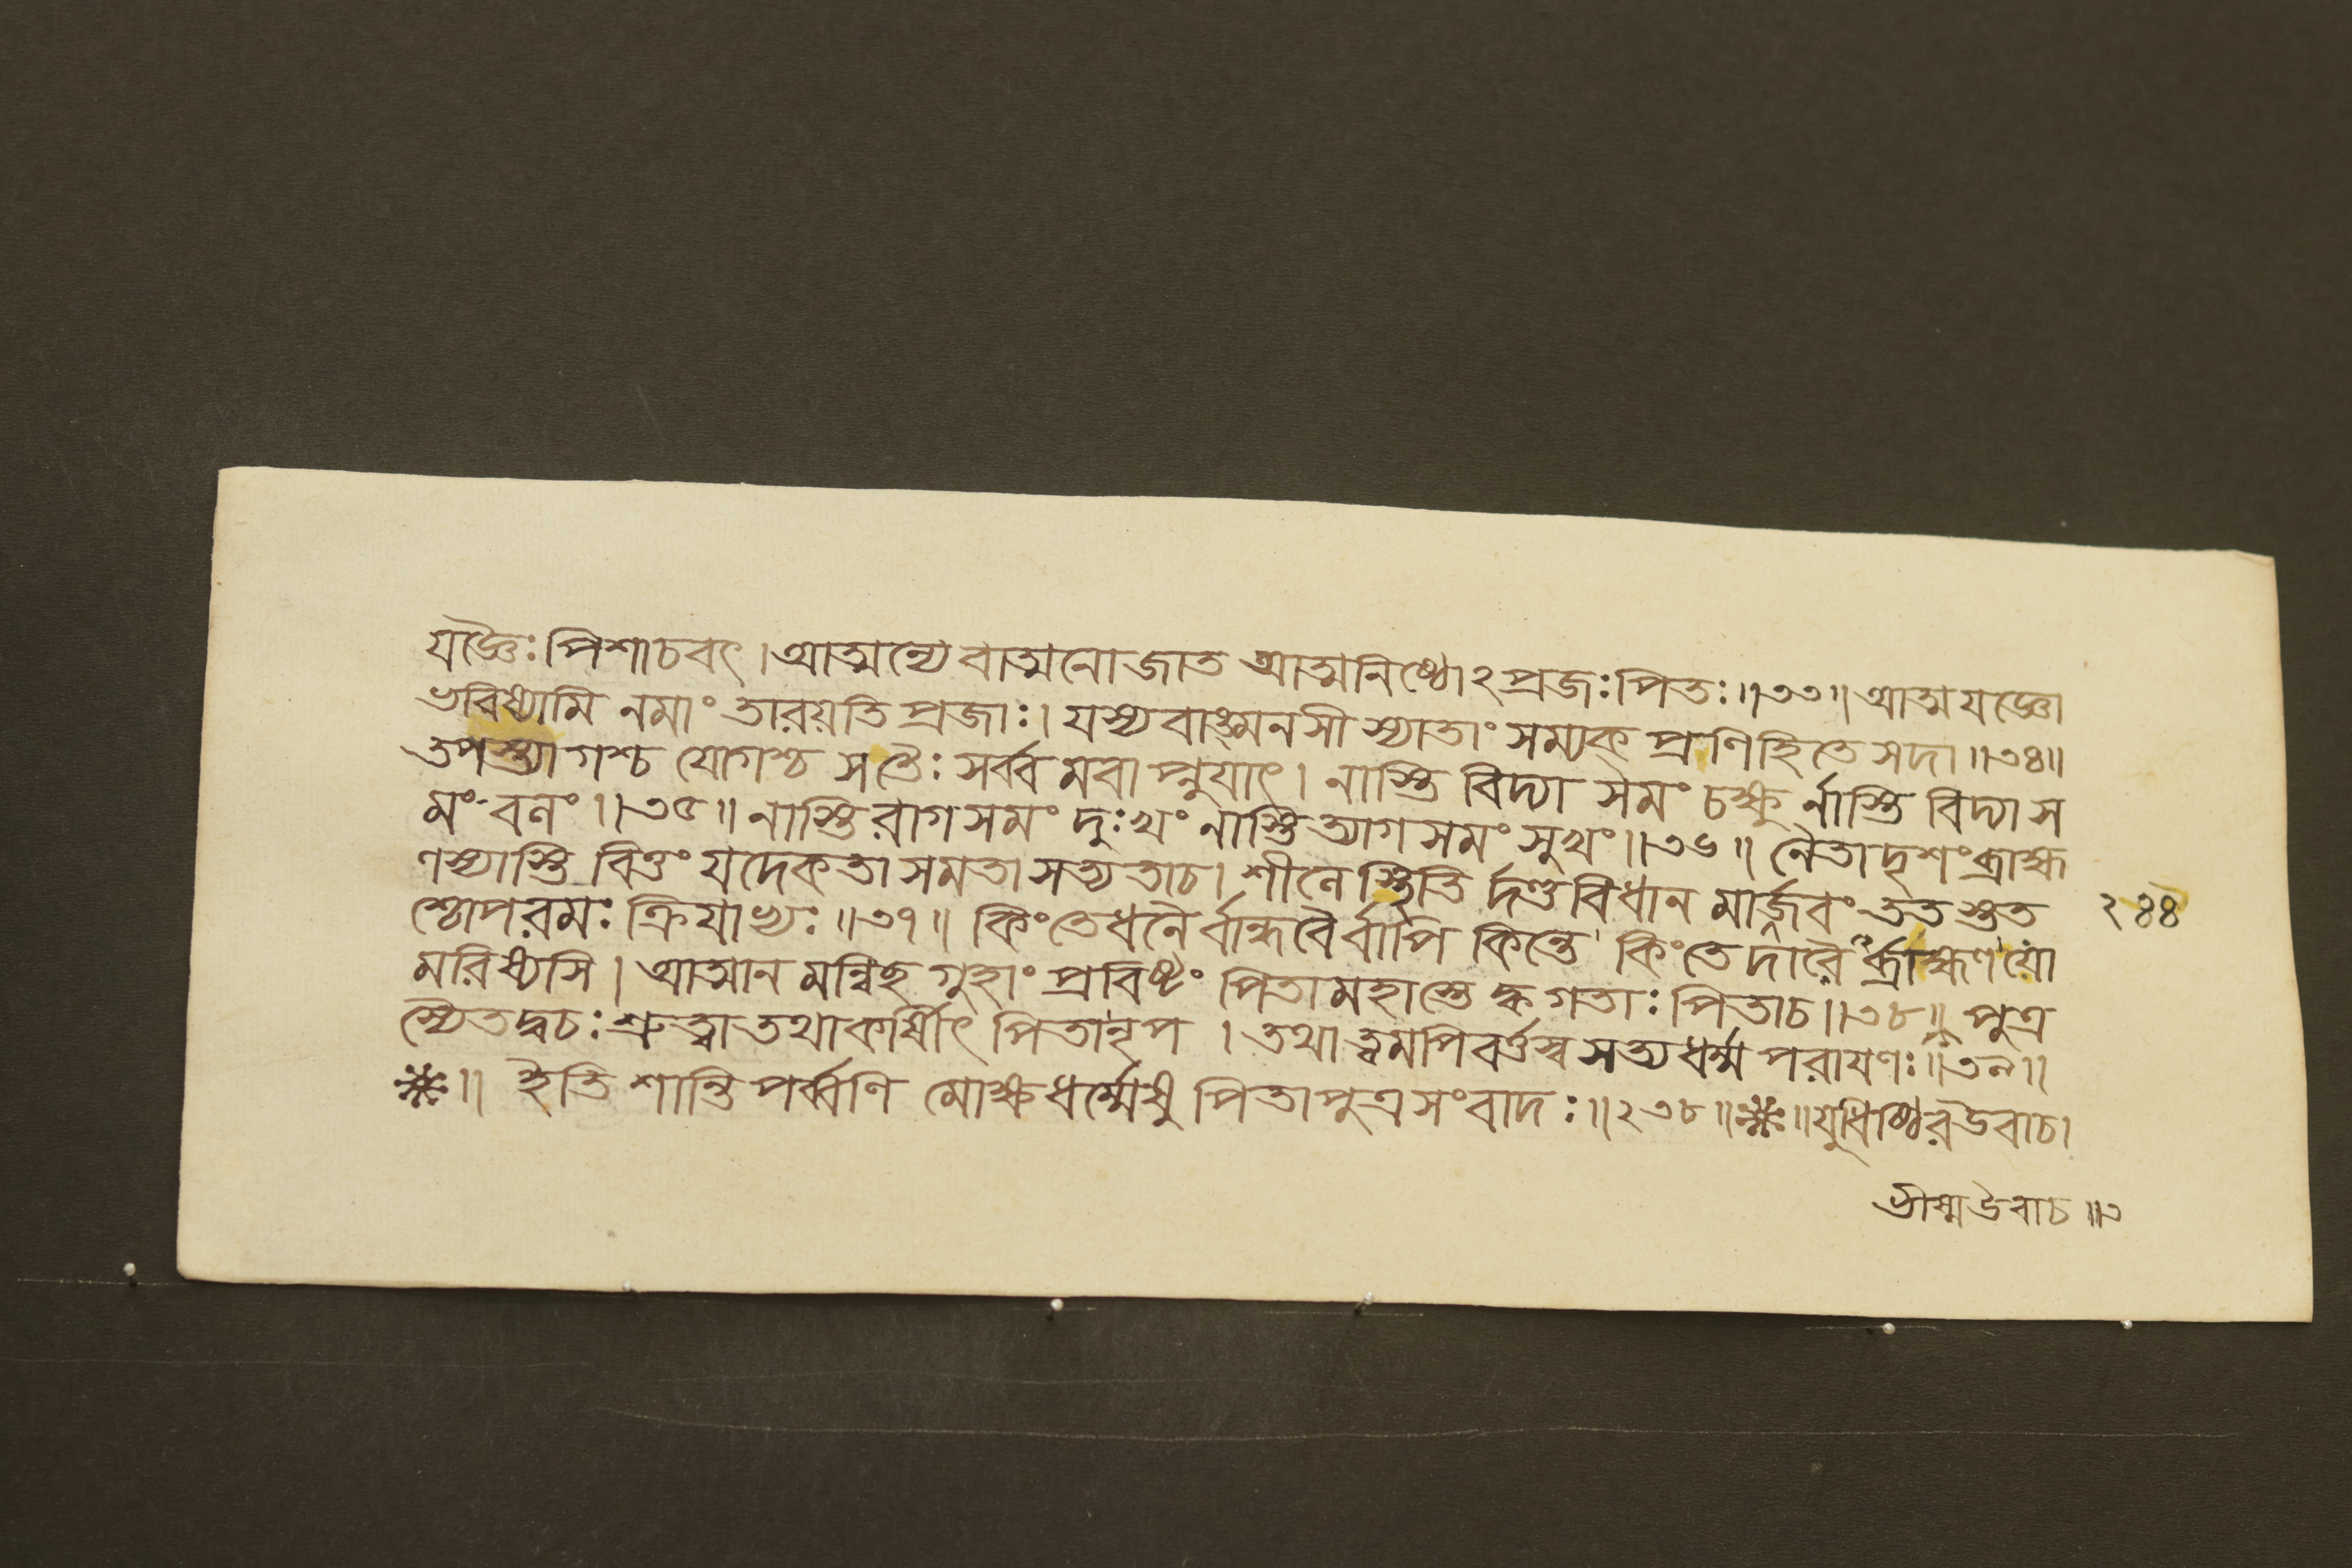 যজ্ঞৈঃ পিশাচবৎ । আত্মন্যেবাত্মনো জাত আত্মনিষ্ঠোঽপ্রজঃ পিতঃ ॥৩৩॥ আত্মযজ্ঞো
ভবিষ্যামি নমাং তারয়তি প্রজাঃ । যস্য বাঙ্মনসী স্যাতাং সম্যক প্রণিহিতে সদা ॥৩৪॥
তপস্ত্যাগশ্চ যোগশ্চ সতৈঃ সর্ব্ব মবাপ্নুযাৎ । নাস্তি বিদ্যা সমং চক্ষু র্নাস্তি বিদ্যা স
মং বনং ॥৩৫॥ নাস্তি রাগ সমং দুঃখং নাস্তি ত্যাগ সমং সুখং ॥৩৬॥ নৈতাদৃশং ব্রাহ্ম
ণস্যাস্তি বিত্তং যদেকতা সমতা সত্যতাচ । শীনে স্থিতি র্দণ্ডবিধান মার্জবং তত শ্তত
শ্চোপরমঃ ক্রিযাভ্যঃ ॥৩৭॥ কিংতে ধনৈ র্বান্ধবৈ র্বাপি কিন্তে কিংতে দারৈ র্ব্রাহ্মণ যো
মরিষ্যসি । আত্মান মন্বিছ গুহাং প্রবিষ্টং পিতামহাস্তে ক্বগতাঃ পিতাচ ॥৩৮॥ পুত্র
স্যৈতদ্বচঃ শ্রুত্বা তথাকর্ষিীৎ পিতানৃপ । তথা ত্বমপি বর্ত্তস্ব সত্যধর্ম্ম পরাযণঃ ॥৩৯॥
॥ ইতি শান্তি পর্ব্বণি মোক্ষধর্ম্মেষু পিতাপুত্র সংবাদঃ ॥২৩৮॥ ॥ যুধিষ্ঠির উবাচ ।
২৪৪
ভীষ্ম উবাচ ॥৩